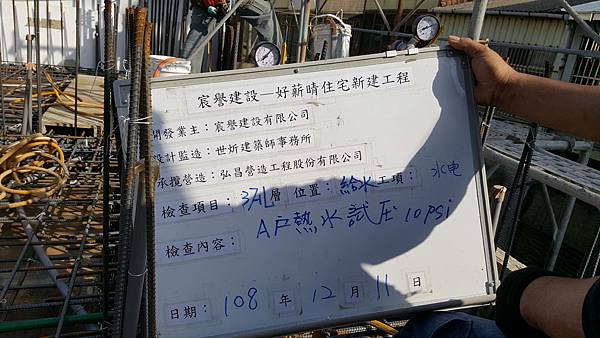 宸譽建設—好薪晴住宅新建工程
開發業主：宸譽建設有限公司
設計監造：世妡建築師事務所
承攬營造：弘昌營造工程股份有限公司
檢查項目：3FL層 位置：給水 工項：水电
檢查內容：A戶熱水試压 10psi
日期：108年12月11日